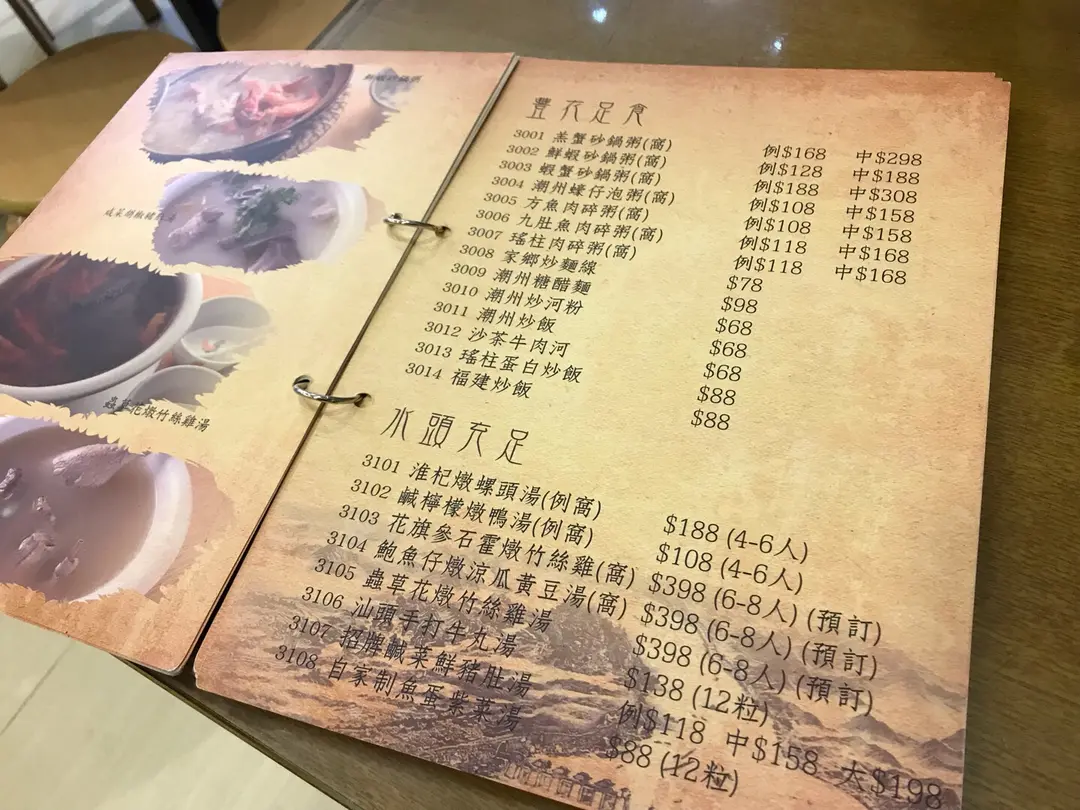 蟲草花燉竹絲雞湯
豐衣足食
3001 羔蟹砂鍋粥(窩) 例$168 中$298
3002 鮮蝦砂鍋粥(窩) 例$128 中$188
3003 蝦蟹砂鍋粥(窩) 例$188 中$308
3004 潮州蠔仔泡粥(窩) 例$108 中$158
3005 方魚肉碎粥(窩) 例$108 中$158
3006 九肚魚肉碎粥(窩) 例$118 中$168
3007 瑤柱肉碎粥(窩) 例$118 中$168
3008 家鄉炒麵線 $78
3009 潮州糖醋麵 $98
3010 潮州炒河粉 $68
3011 潮州炒飯 $68
3012 沙茶牛肉河 $68
3013 瑤柱蛋白炒飯 $88
3014 福建炒飯 $88
水頭充足
3101 淮杞燉螺頭湯(例窩) $188 (4-6人)
3102 鹹檸檬燉鴨湯(例窩) $108 (4-6人)
3103 花旗參石霍燉竹絲雞(窩) $398 (6-8人) (預訂)
3104 鮑魚仔燉涼瓜黃豆湯(窩) $398 (6-8人) (預訂)
3105 蟲草花燉竹絲雞湯 $398 (6-8人) (預訂)
3106 汕頭手打牛丸湯 $138 (12粒)
3107 招牌鹹菜鮮豬肚湯 例$118 中$158 大$198
3108 自家制魚蛋紫菜湯 $88 (12粒)